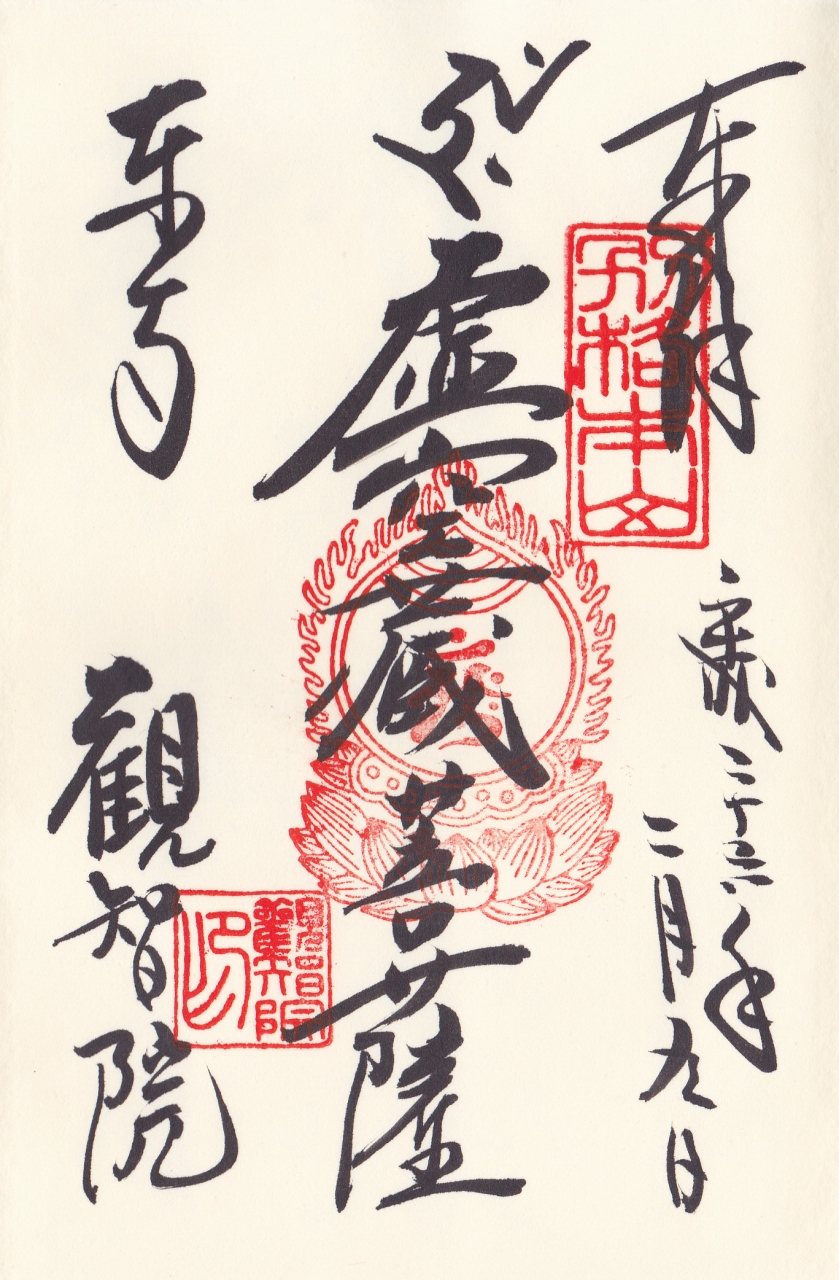 奉拝
別格本山
平成二十六年
二月九日
虚空蔵菩薩
東寺
観智院
觀智院印